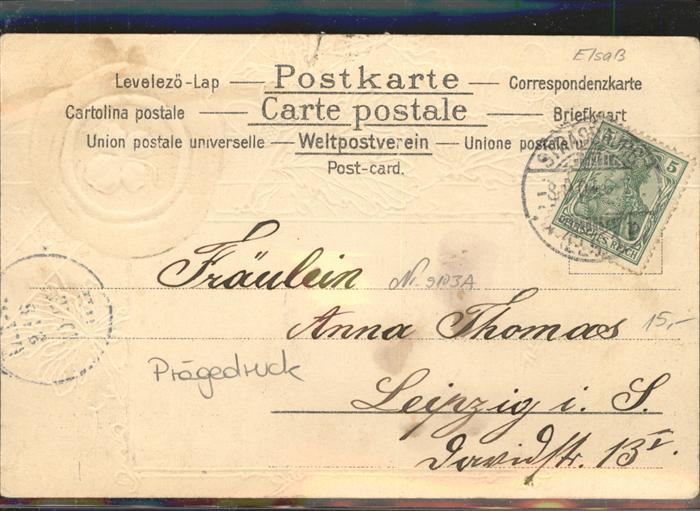 Elsaß
Levelezö-Lap — Postkarte — Correspondenzkarte
Cartolina postale — Carte postale — Briefkaart
Union postale universelle — Weltpostverein — Unione postale
Post-card.
STRASSBURG
5
DEUTSCHES REICH
Fräulein Nr. 9103A
Anna Thomas 15,-
Prägedruck
Leipzig i. S.
Davidstr. 13 I.